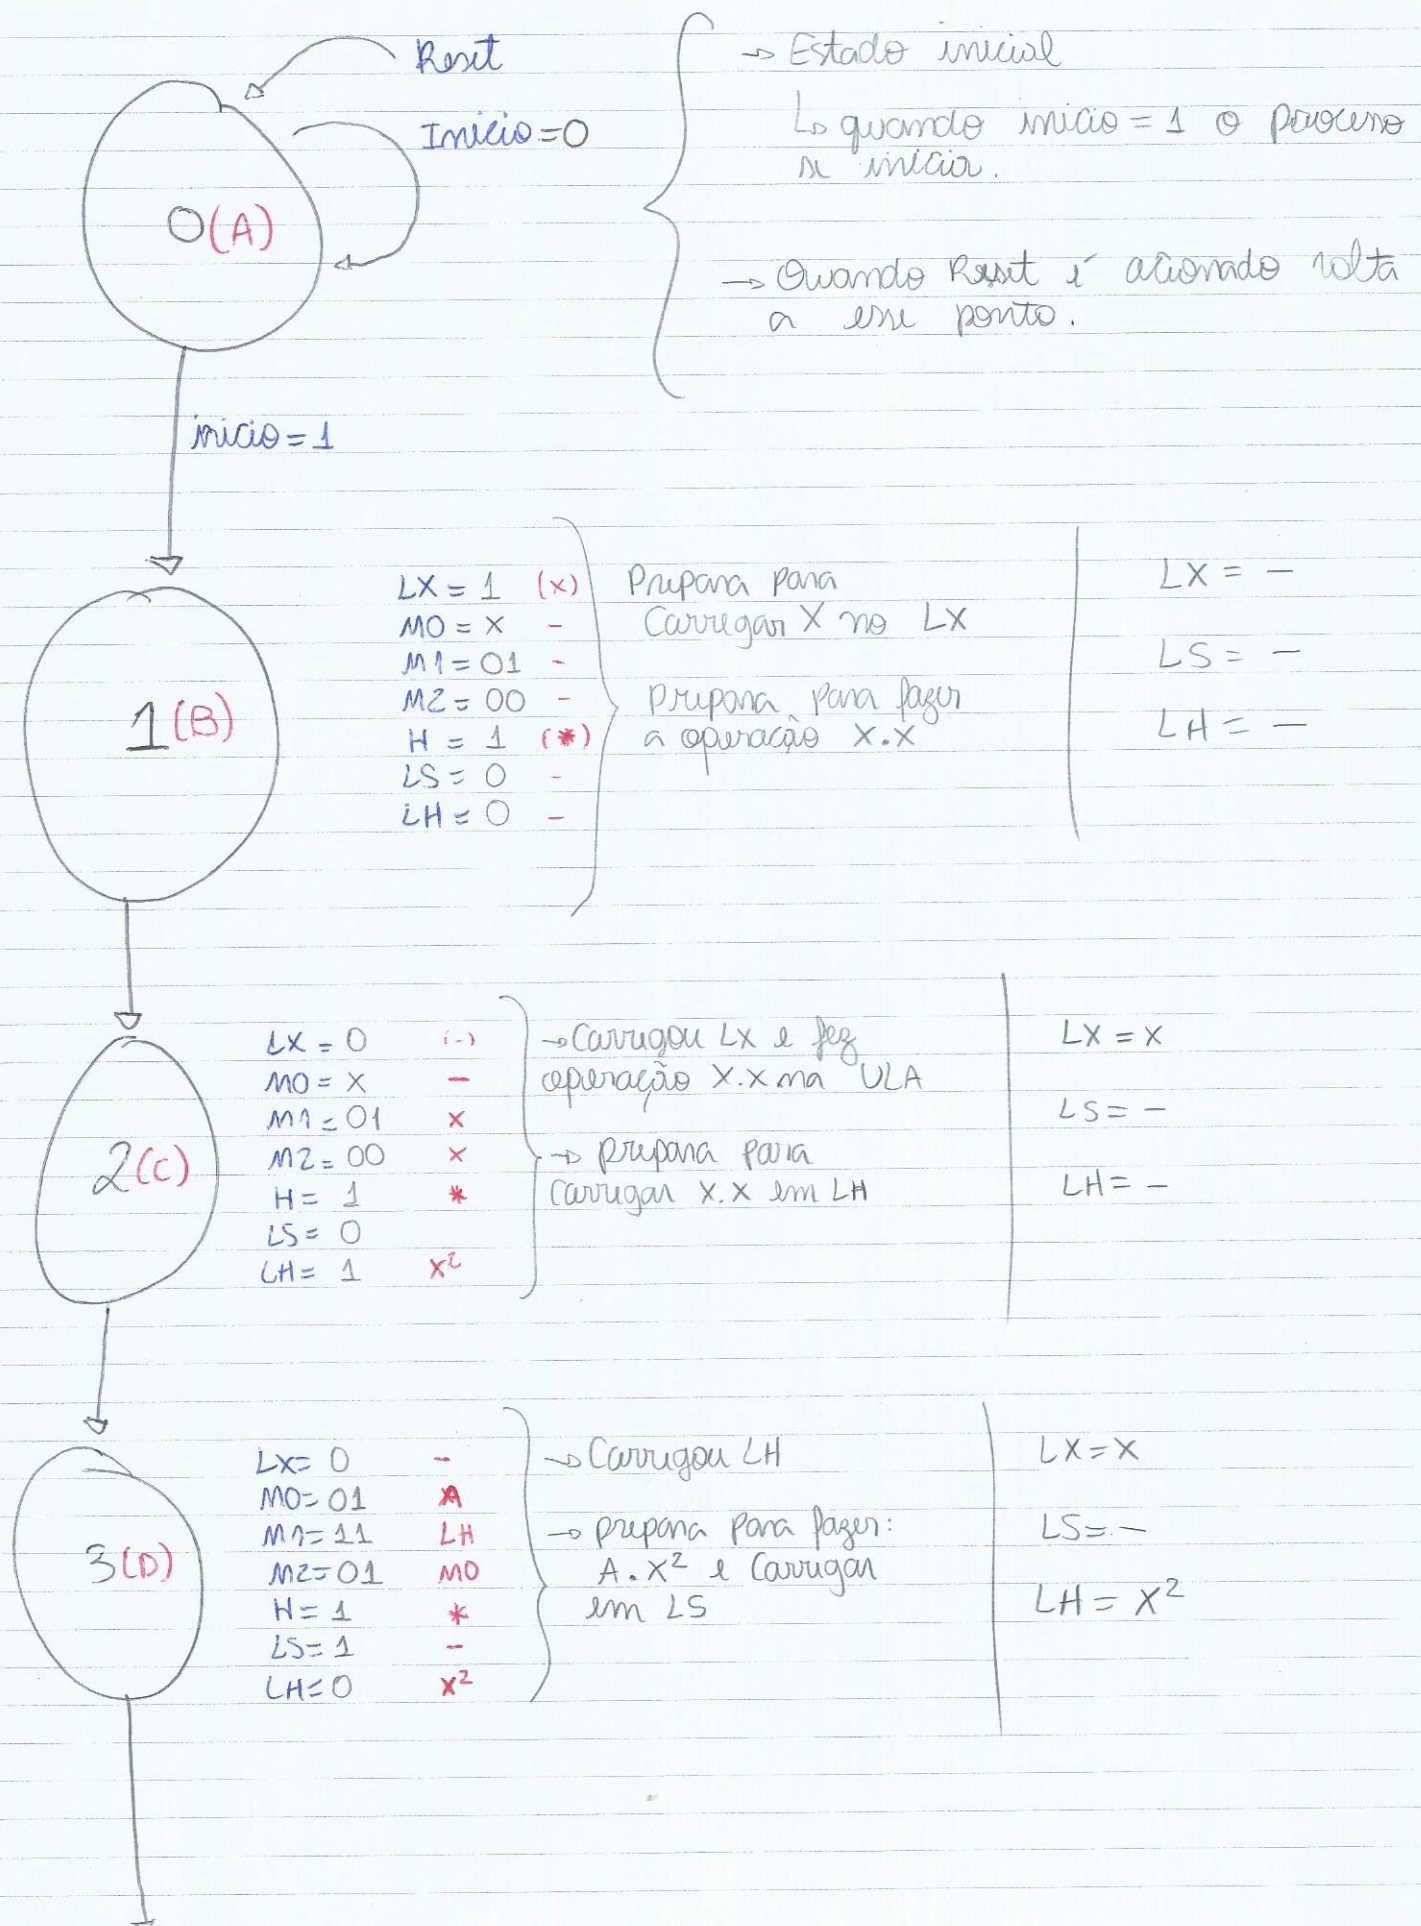 Reset
Início=0
0(A)
→ Estado inicial
↳ quando inicio = 1 o processo
se inicia.
→ Quando Reset é acionado volta
a esse ponto.
inicio = 1
1(B)
LX = 1 (x)
M0 = X -
M1 = 01 -
M2 = 00 -
H = 1 (*)
LS = 0 -
LH = 0 -
Prepara para
Carregar X no LX
prepara para fazer
a operação X.X
LX = -
LS = -
LH = -
2(C)
LX = 0 (-)
M0 = X -
M1 = 01 x
M2 = 00 x
H = 1 *
LS = 0
LH = 1 X²
→ Carregou LX e fez
operação X.X na ULA
→ prepara para
Carregar X.X em LH
LX = X
LS = -
LH = -
3(D)
LX = 0 -
M0 = 01 A
M1 = 11 LH
M2 = 01 M0
H = 1 *
LS = 1 -
LH = 0 X²
→ Carregou LH
→ prepara para fazer:
A.X² e Carregar
em LS
LX = X
LS = -
LH = X²